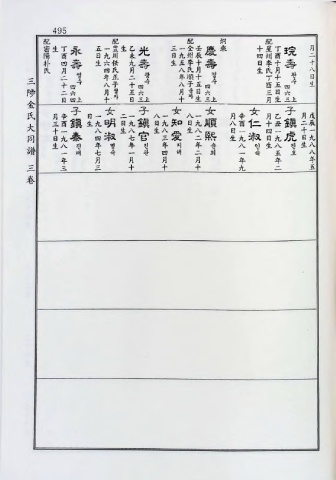 495
月二十八日生
琓壽 완수 四六三上
丁酉十月十五日生
配星州李氏一百三
十四日生
炯宸
慶壽 경수 四六三上
壬辰十月十五日生
配全州李氏順子
一九五八年八月十
三日生
光壽 광수 四六三上
乙未九月二十五日生
配豊川任氏正子
一九六四年八月十
五日生
永壽 영수 四六四上
丁酉四月二十二日
生
配密陽朴氏
戊辰一九八八年五
月二十日生
子鎭虎 진호
乙丑一九八五年二
月十四日生
女仁淑 인숙
辛酉一九八一年十
月八日生
女順熙 순희
一九八二年二月十
八日生
女知愛 지애
一九八三年四月十
八日生
子鎭官 진관
一九八七年一月十
二日生
女明淑 명숙
一九八四年七月三
日生
子鎭泰 진태
辛酉一九八一年三
月三十日生
三陟金氏大同譜 三卷